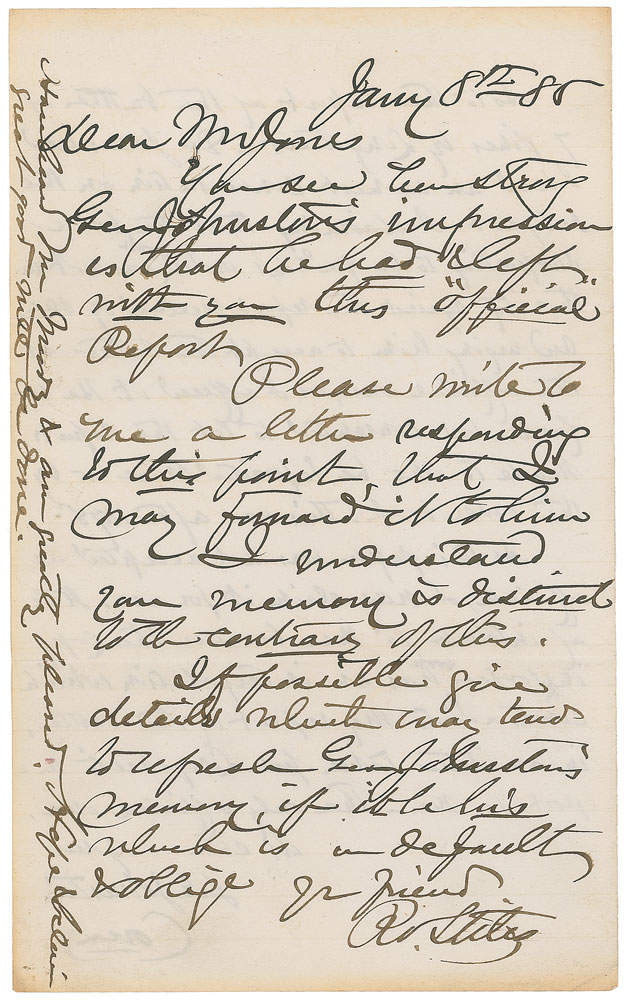 Jany 8th 85
Dear Mr Jones
You see how strong
Gen Johnston's impression
is that he had left
with you this "official"
Report
Please write to
me a letter responding
to this point, that I
may forward it to him
I understand
your memory is distinct
to the contrary of this.
If possible give
details which may tend
to refresh Gen Johnston's
memory, if it be his
which is in default
& oblige yr friend
Ro. Stiles
Have heard Mr Moody & am greatly pleased. Hope & believe
great good will be done.